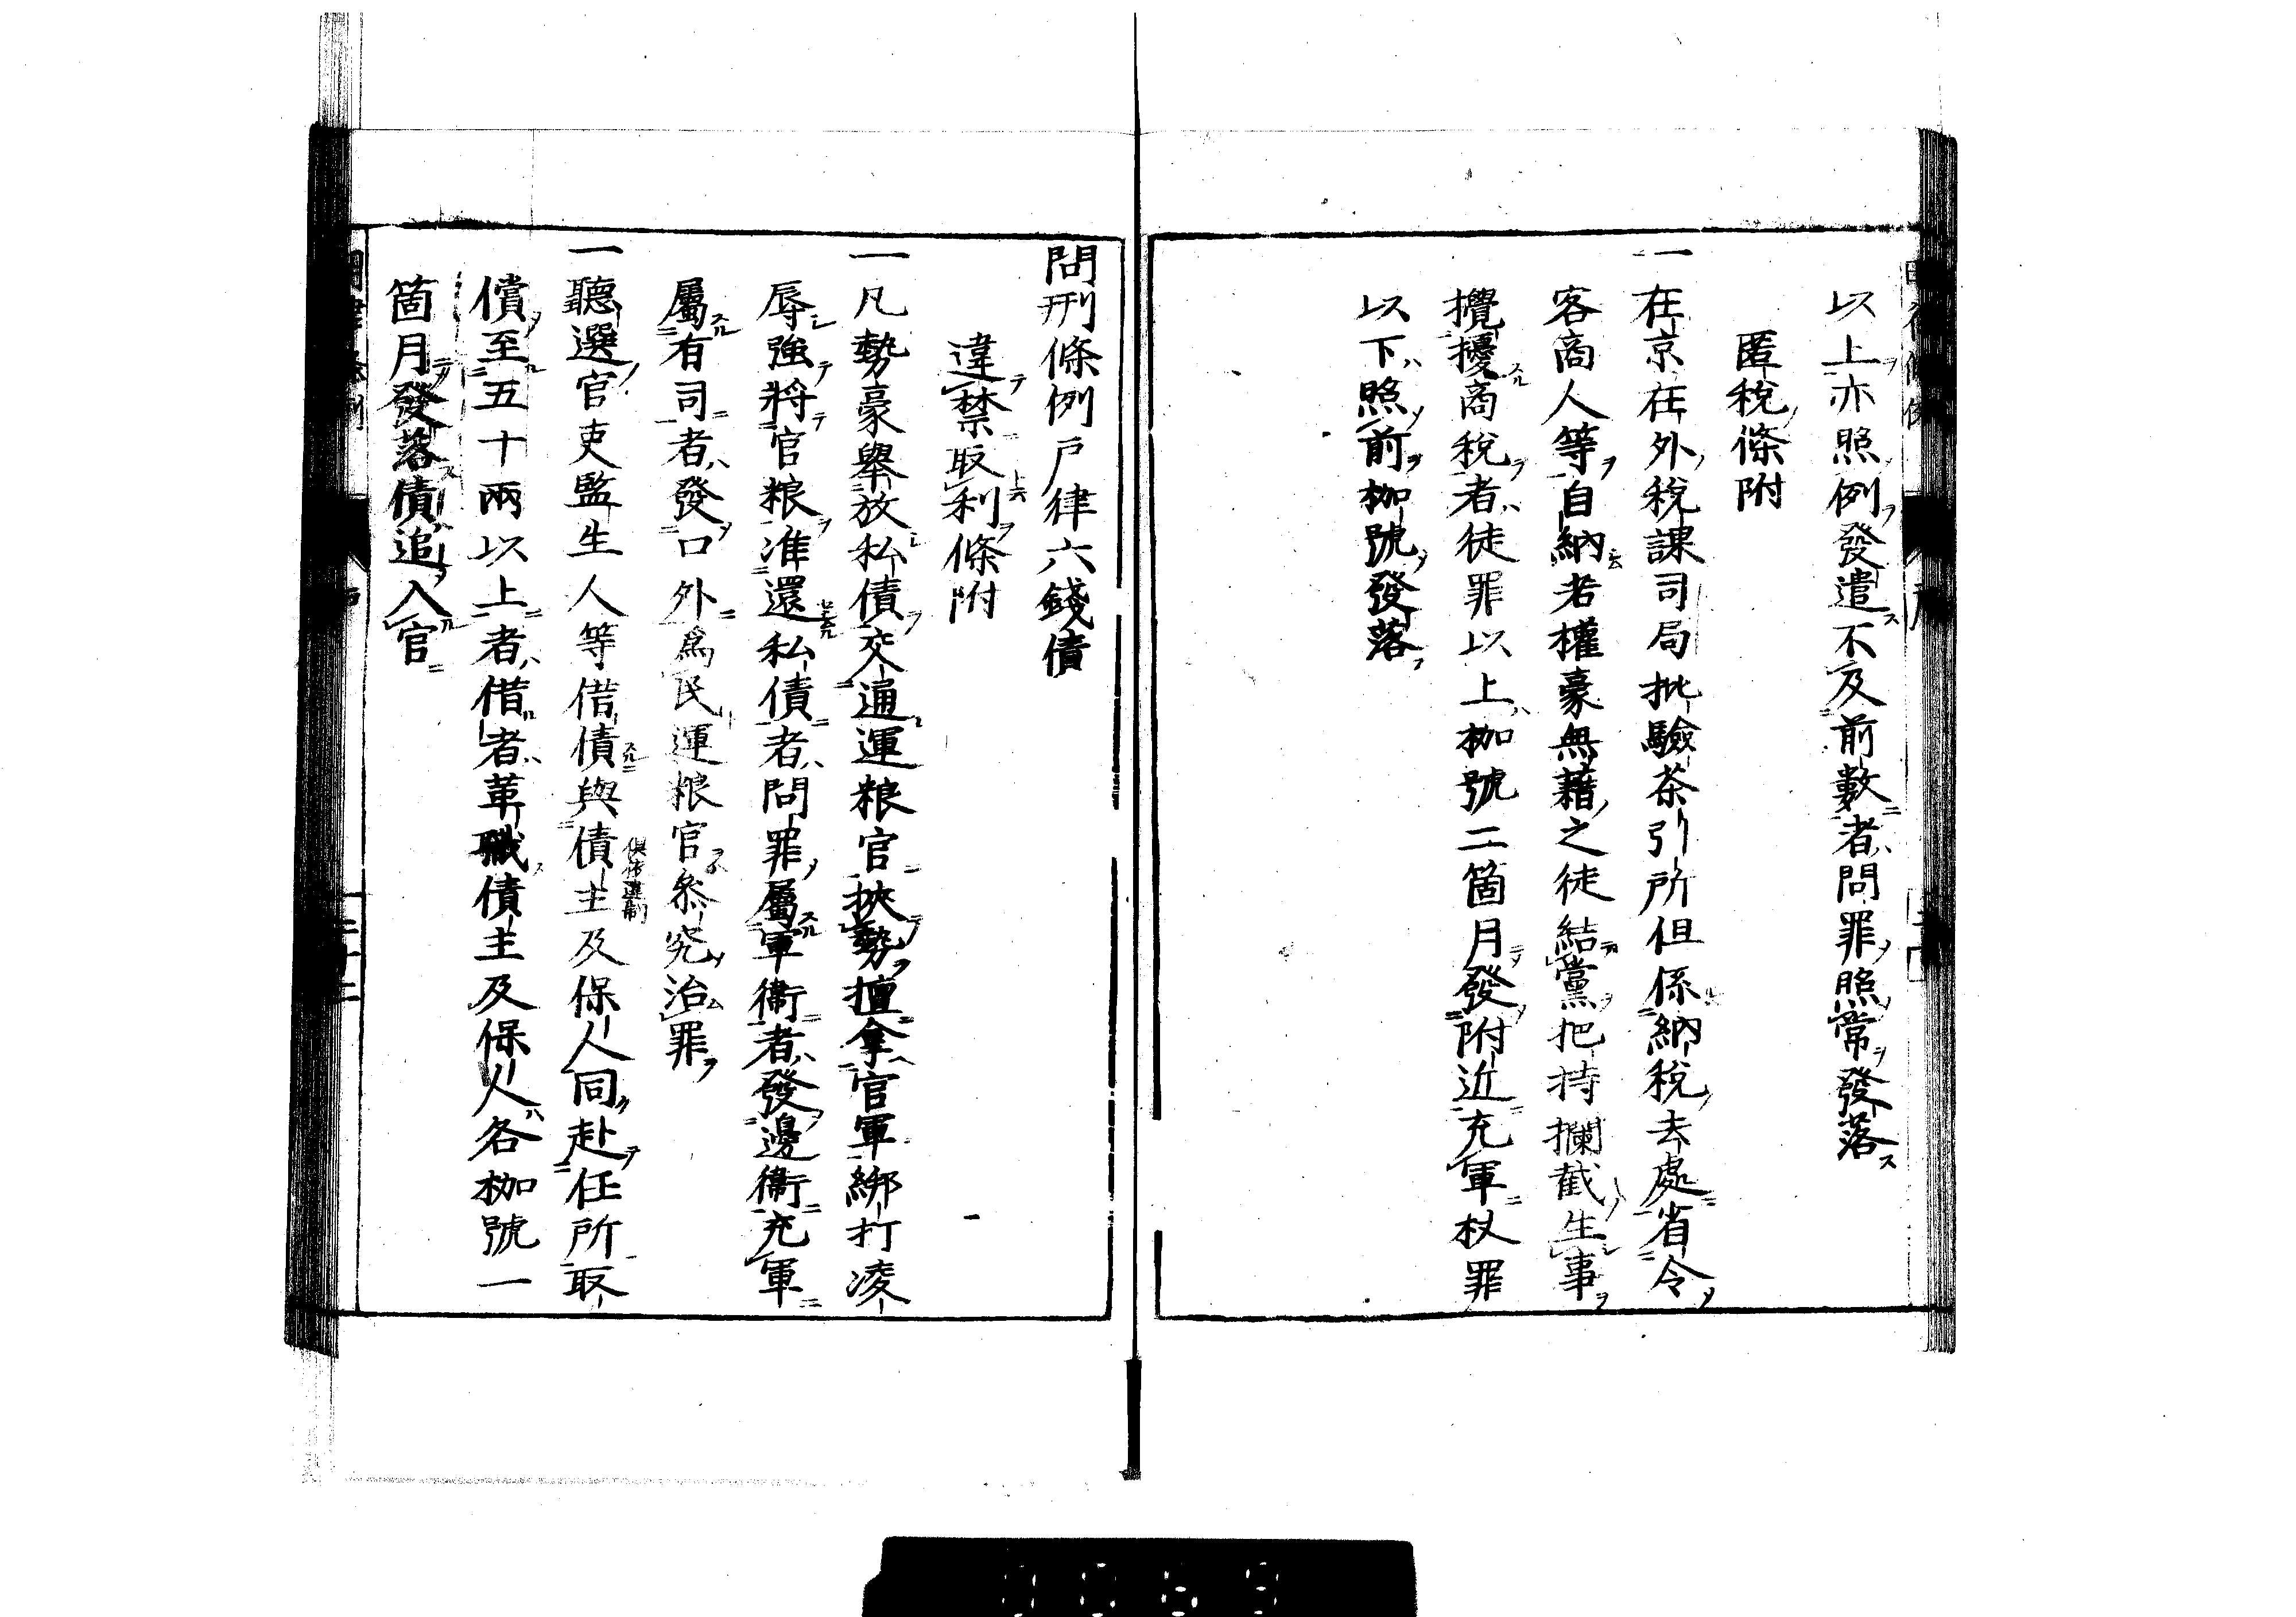 以上亦照例發遣不及前數者問罪照常發落
匿稅條附
一在京在外稅課司局批驗茶引所但係納稅去處省令
客商人等自納若權豪無藉之徒結黨把持攔截生事
攪擾商稅者徒罪以上枷號二箇月發附近充軍杖罪
以下照前枷號發落
問刑條例戶律六錢債
違禁取利條附
一凡勢豪舉放私債交通運粮官挾勢擅拿官軍綁打凌
辱強將官粮准還私債者問罪屬軍衞者發邊衞充軍
屬有司者發口外爲民運粮官參究治罪
一聽選官吏監生人等借債與債主及保人同赴任所取
償至五十兩以上者借者革職債主及保人各枷號一
箇月發落債追入官